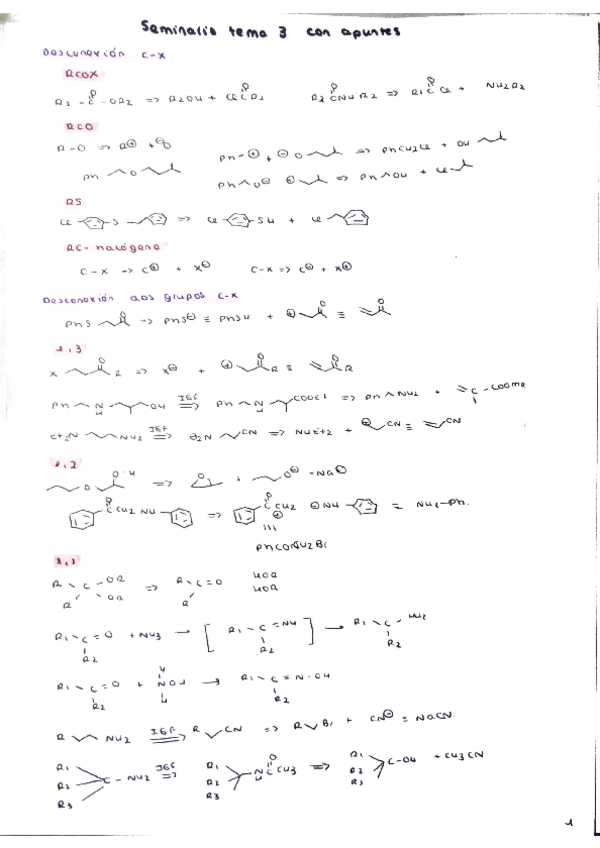 Seminario tema 3 con apuntes
Desconexión C-X
RCOX
R1-C-OR2 => R2OH + ClCR1
=> R1CCl + NH2R2
RCO
R-O =>
Ph O
=> PhCH2Cl + OH
=> Ph OH + Cl
RS
Cl S => Cl SH + Cl
RC-halógeno
C-X => C⊕ + X⊖ C-X => C⊖ + X⊕
Desconexión dos grupos C-X
PhS => PhS⊖ ≡ PhSH + ⊕ ≡
1,3
X R => X⊖ + ⊕ R ≡ R
Ph N H OH IGF => Ph N H COOEt => Ph NH2 + C-COOMe
Et2N NH2 IGF => CN => NHEt2 + ⊕ CN ≡ CN
1,2
O O-H => O + O⊖ + Na⊕
C CH2 NH => C CH2 ⊕ ⊖NH = NH2-Ph.
PhCOCH2Br
1,1
R C OR OR R => R C=O R HOR HOR
R1 C=O R2 + NH3 → [R1-C=NH R2] → R1 C-NH2 R2
R1 C=O R2 + H NOH H → R1-C=N-OH R2
R NH2 IGF => R CN => R Br + CN⊖ ≡ NaCN
R1 R2 R3 C-NH2 IGF => R1 R2 R3 N H C CH3 O => R1 R2 R3 C-OH + CH3CN
1